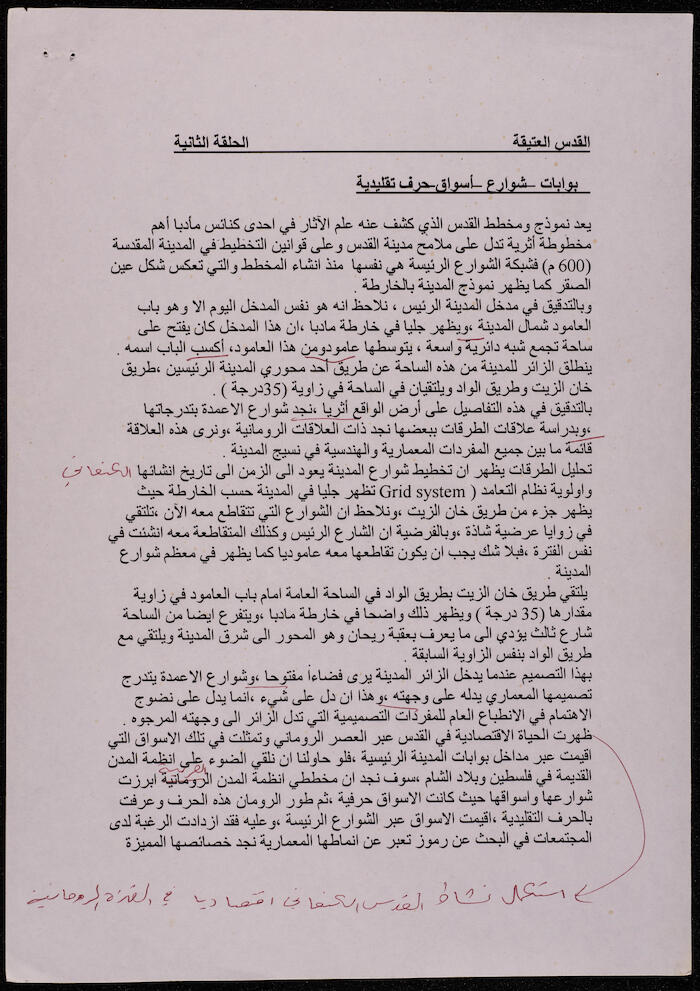 القدس العتيقة الحلقة الثانية
بوابات –شوارع –أسواق-حرف تقليدية
يعد نموذج ومخطط القدس الذي كشف عنه علم الآثار في احدى كنائس مأدبا أهم
مخطوطة أثرية تدل على ملامح مدينة القدس وعلى قوانين التخطيط في المدينة المقدسة
(600 م) فشبكة الشوارع الرئيسة هي نفسها منذ انشاء المخطط والتي تعكس شكل عين
الصقر كما يظهر نموذج المدينة بالخارطة .
وبالتدقيق في مدخل المدينة الرئيس ، نلاحظ انه هو نفس المدخل اليوم الا وهو باب
العامود شمال المدينة ،ويظهر جليا في خارطة مادبا ،ان هذا المدخل كان يفتح على
ساحة تجمع شبه دائرية واسعة ، يتوسطها عامودومن هذا العامود، أكسب الباب اسمه .
ينطلق الزائر للمدينة من هذه الساحة عن طريق أحد محوري المدينة الرئيسين ،طريق
خان الزيت وطريق الواد ويلتقيان في الساحة في زاوية (35درجة ) .
بالتدقيق في هذه التفاصيل على أرض الواقع أثريا ،نجد شوارع الاعمدة بتدرجاتها
،وبدراسة علاقات الطرقات ببعضها نجد ذات العلاقات الرومانية ،ونرى هذه العلاقة
قائمة ما بين جميع المفردات المعمارية والهندسية في نسيج المدينة .
تحليل الطرقات يظهر ان تخطيط شوارع المدينة يعود الى الزمن الى تاريخ انشائها الكنعاني
واولوية نظام التعامد ( Grid system تظهر جليا في المدينة حسب الخارطة حيث
يظهر جزء من طريق خان الزيت ،ونلاحظ ان الشوارع التي تتقاطع معه الآن ،تلتقي
في زوايا عرضية شاذة ،وبالفرضية ان الشارع الرئيس وكذلك المتقاطعة معه انشئت في
نفس الفترة ،فبلا شك يجب ان يكون تقاطعها معه عاموديا كما يظهر في معظم شوارع
المدينة .
يلتقي طريق خان الزيت بطريق الواد في الساحة العامة امام باب العامود في زاوية
مقدارها (35 درجة ) ويظهر ذلك واضحا في خارطة مادبا ،ويتفرع ايضا من الساحة
شارع ثالث يؤدي الى ما يعرف بعقبة ريحان وهو المحور الى شرق المدينة ويلتقي مع
طريق الواد بنفس الزاوية السابقة .
بهذا التصميم عندما يدخل الزائر المدينة يرى فضاءاً مفتوحا ،وشوارع الاعمدة يتدرج
تصميمها المعماري يدله على وجهته ،وهذا ان دل على شيء ،انما يدل على نضوج
الاهتمام في الانطباع العام للمفردات التصميمية التي تدل الزائر الى وجهته المرجوه .
ظهرت الحياة الاقتصادية في القدس عبر العصر الروماني وتمثلت في تلك الاسواق التي
اقيمت عبر مداخل بوابات المدينة الرئيسية ،فلو حاولنا ان نلقي الضوء على انظمة المدن
القديمة في فلسطين وبلاد الشام ،سوف نجد ان مخططي انظمة المدن الرومانية ابرزت
شوارعها واسواقها حيث كانت الاسواق حرفية ،ثم طور الرومان هذه الحرف وعرفت
بالحرف التقليدية ،اقيمت الاسواق عبر الشوارع الرئيسة ،وعليه فقد ازدادت الرغبة لدى
المجتمعات في البحث عن رموز تعبر عن انماطها المعمارية نجد خصائصها المميزة
استكمال نشاط القدس الكنعاني اقتصاديا في الفترة الرومانية